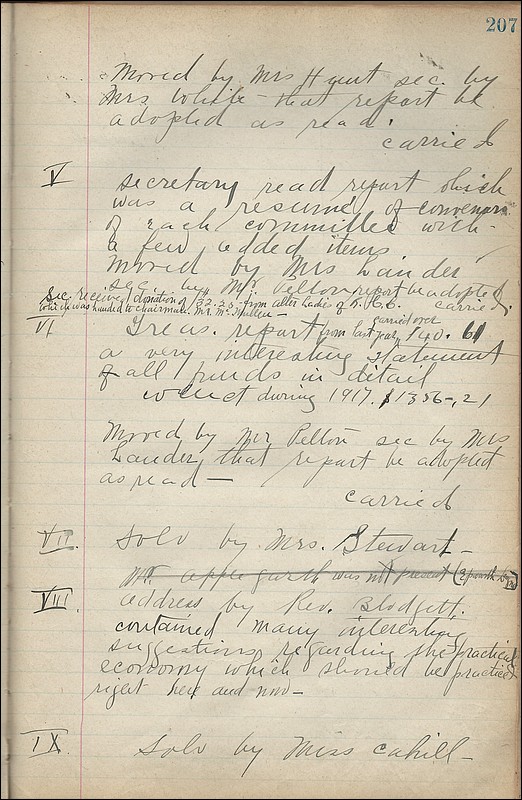 207
Moved by Mrs Hunt sec. by
Mrs White that report be
adopted as read.
carried
V secretary read report which
was a resumé of convenors
of each committee with
a few added items
Moved by Mrs Lander
sec. by Mr. Pelton report be adopted.
carried
Sec. received donation of 32.25 from Ladies of
which was handed to chairman Mr. McMullen -
VI Treas. report from last year 140.61
carried over
a very interesting statement
of all funds in detail
during 1917. $1356-.21
Moved by Mr Pelton sec by Mrs
Lander, that report be adopted
as read -
carried
VII. Solo by Mrs. Stewart -
Mr applegarth was not present
VIII. address by Rev. Blodgett.
contained many interesting
suggestions regarding the practical
economy which should be practice
right here and now -
IX. Solo by Miss Cahill -